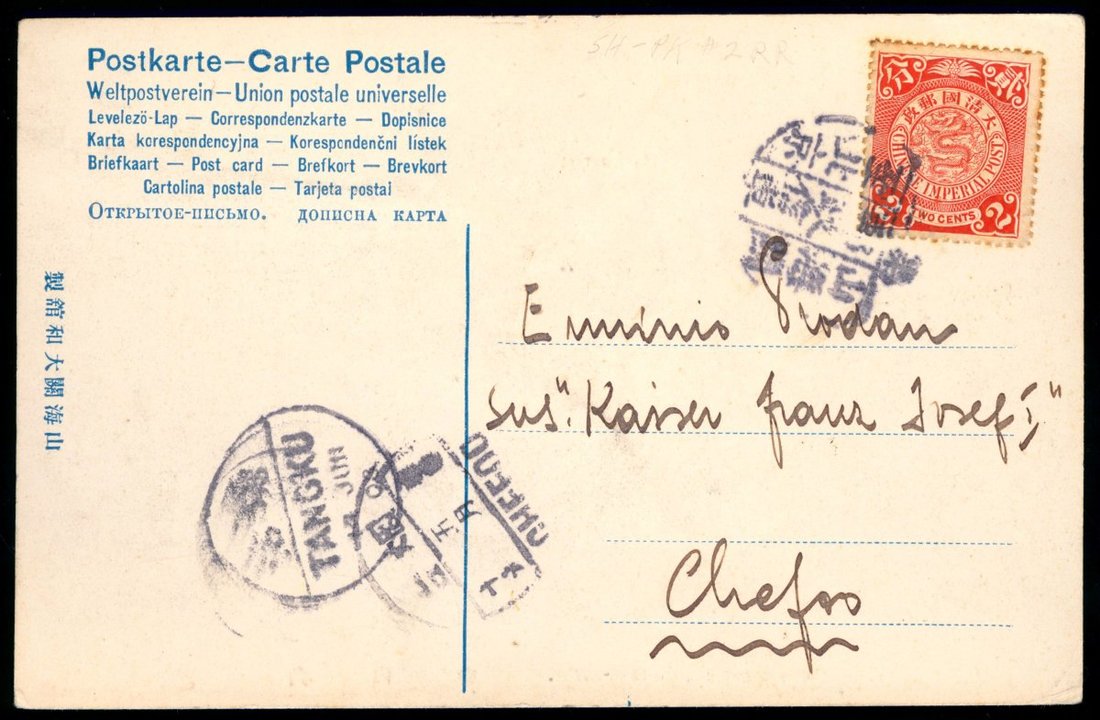 Postkarte—Carte Postale
Weltpostverein—Union postale universelle
Levelező-Lap — Correspondenzkarte — Dopisnice
Karta korespondencyjna — Korespondenční lístek
Briefkaart — Post card — Brefkort — Brevkort
Cartolina postale — Tarjeta postal
Открытое-письмо. дописна карта
山海關大和舘製
SH-PK #2RR
分 貳
大清國郵政
CHINESE IMPERIAL POST
2 TWO CENTS 2
Erminio Rodan
SMS "Kaiser Franz Josef I"
Chefoo
TANGKU
JUN
CHEFOO
五月